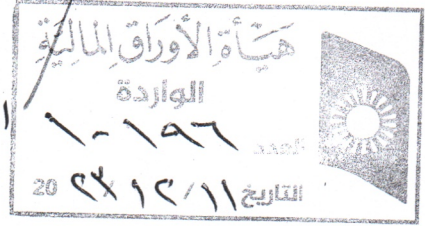 هيأة الأوراق المالية
الواردة
العدد ١٠١٩٦
التاريخ ١١/١٢/٢٣ 20